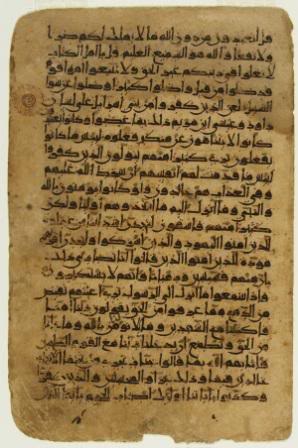 قل اتعبدون من دون الله ما لا يملك لكم ضرا
ولا نفعا والله هو السميع العليم قل يا اهل الكتاب
لا تغلوا في دينكم غير الحق ولا تتبعوا اهوا قوم
قد ضلوا من قبل واضلوا كثيرا وضلوا عن سوا
السبيل لعن الذين كفروا من بني اسرايل على لسان
داود وعيسى ابن مريم ذلك بما عصوا وكانوا يعتدون
كانوا لا يتناهون عن منكر فعلوه لبيس ما كانوا
يفعلون ترى كثيرا منهم يتولون الذين كفروا
لبيس ما قدمت لهم انفسهم ان سخط الله عليهم
وفي العذاب هم خالدون ولو كانوا يومنون بالله
والنبي وما انزل اليه ما اتخذوهم اوليا ولكن
كثيرا منهم فاسقون لتجدن اشد الناس عداوة
للذين امنوا اليهود والذين اشركوا ولتجدن اقربهم
مودة للذين امنوا الذين قالوا انا نصارى ذلك
بان منهم قسيسين ورهبانا وانهم لا يستكبرون
واذا سمعوا ما انزل الى الرسول ترى اعينهم تفيض
من الدمع مما عرفوا من الحق يقولون ربنا امنا
فاكتبنا مع الشهدين وما لنا لا نومن بالله وما جانا
من الحق ونطمع ان يدخلنا ربنا مع القوم الصلحين
فاثابهم الله بما قالوا جنات تجري من تحتها الانهار
خالدين فيها وذلك جزا المحسنين والذين كفروا
وكذبوا باياتنا اوليك اصحاب الجحيم يا ايها الذين